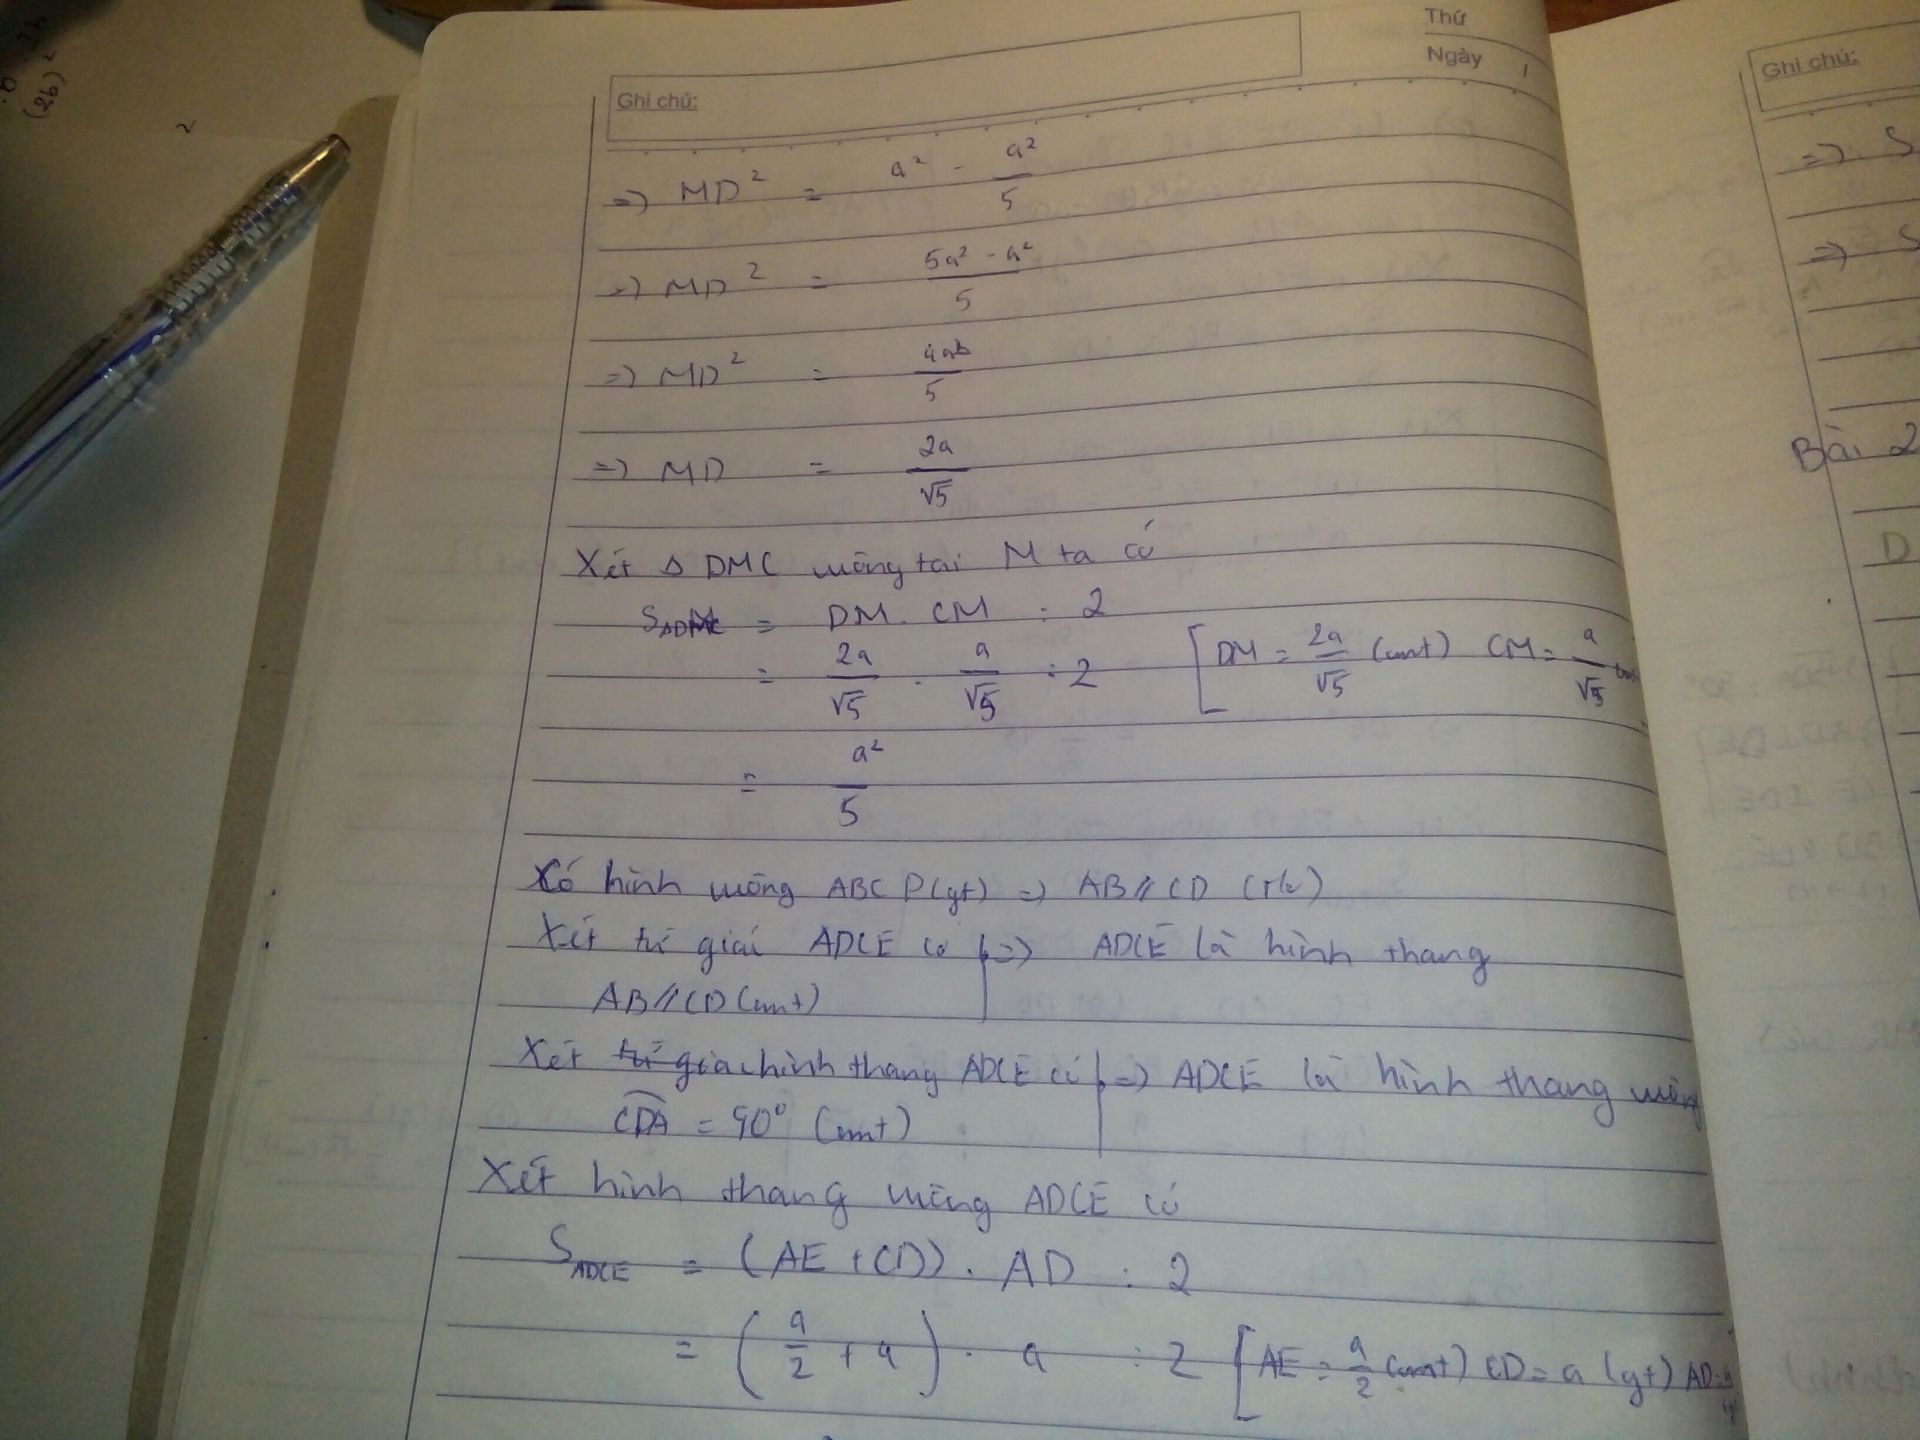 Thứ
Ngày
Ghi chú:
=> MD² = a² - a²/5
=> MD² = (5a² - a²)/5
=> MD² = 4a²/5
=> MD = 2a/√5
Xét Δ DMC vuông tại M ta có
S = DM . CM : 2
= 2a/√5 . a/√5 : 2 [DM = 2a/√5 (cmt) CM = a/√5
= a²/5
Có hình vuông ABCD (gt) => AB // CD (t/c)
Xét tứ giác ADCE có | => ADCE là hình thang
AB // CD (cmt)
Xét hình thang ADCE có | => ADCE là hình thang vuông
CDA = 90° (cmt)
Xét hình thang vuông ADCE có
S ADCE = (AE + CD) . AD : 2
= (a/2 + a) . a : 2 [AE = a/2 (cmt) CD = a (gt) AD
Ghi chú:
=> S
=> S
Bài 2
D
(2b)²